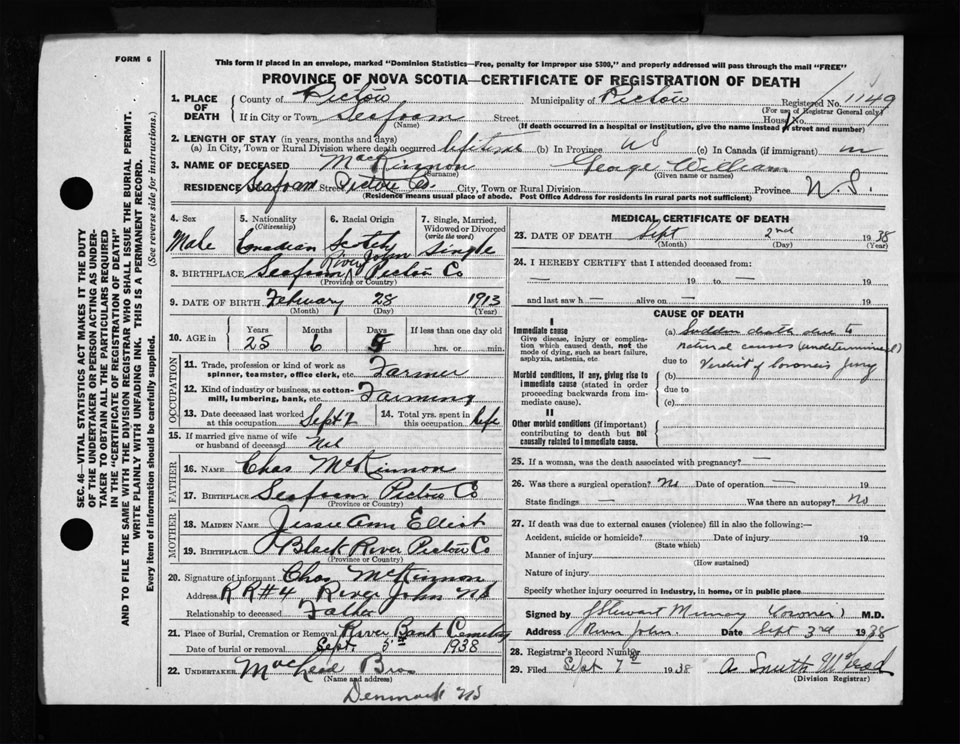 FORM 6
This form If placed in an envelope, marked "Dominion Statistics—Free, penalty for improper use $300," and properly addressed will pass through the mail "FREE"
PROVINCE OF NOVA SCOTIA—CERTIFICATE OF REGISTRATION OF DEATH
1. PLACE OF DEATH County of Pictou Municipality of Pictou Registered No. 1149
(For use of Registrar General only)
If in City or Town Seafoam Street House No.
(Name) (If death occurred in a hospital or institution, give the name instead of street and number)
2. LENGTH OF STAY (in years, months and days)
(a) In City, Town or Rural Division where death occurred lifetime (b) In Province NS (c) In Canada (if immigrant)
3. NAME OF DECEASED MacKinnon George William
(Surname) (Given name or names)
RESIDENCE Seafoam Street Pictou Co. City, Town or Rural Division Province N.S.
(Residence means usual place of abode. Post Office Address for residents in rural parts not sufficient)
4. Sex 5. Nationality (Citizenship) 6. Racial Origin 7. Single, Married, Widowed or Divorced (write the word)
Male Canadian Scotch Single
River John
8. BIRTHPLACE Seafoam Pictou Co
(Province or Country)
9. DATE OF BIRTH February 28 1913
(Month) (Day) (Year)
10. AGE in Years Months Days If less than one day old
25 6 hrs. or min.
OCCUPATION
11. Trade, profession or kind of work as spinner, teamster, office clerk, etc. Farmer
12. Kind of industry or business, as cotton-mill, lumbering, bank, etc. Farming
13. Date deceased last worked at this occupation Sept 2 14. Total yrs. spent in this occupation life
15. If married give name of wife or husband of deceased Nil
FATHER
16. NAME Chas McKinnon
17. BIRTHPLACE Seafoam Pictou Co
(Province or Country)
MOTHER
18. MAIDEN NAME Jessie Ann Elliot
19. BIRTHPLACE Black River Pictou Co
(Province or Country)
20. Signature of informant Chas McKinnon
Address RR#4 River John NS
Relationship to deceased Father
21. Place of Burial, Cremation or Removal River Bank Cemetery
Date of burial or removal Sept. 5th 1938
22. UNDERTAKER MacLeod Bros
(Name and address)
Denmark NS
MEDICAL CERTIFICATE OF DEATH
23. DATE OF DEATH Sept 2nd 1938
(Month) (Day) (Year)
24. I HEREBY CERTIFY that I attended deceased from:
— 19 to — 19
and last saw h — alive on — 19
CAUSE OF DEATH
I
Immediate cause
Give disease, injury or complication which caused death, not the mode of dying, such as heart failure, asphyxia, asthenia, etc.
(a) Sudden death due to
natural causes (undetermined)
due to
Morbid conditions, if any, giving rise to immediate cause (stated in order proceeding backwards from immediate cause).
(b) Verdict of Coroner's Jury
due to
(c)
II
Other morbid conditions (if important) contributing to death but not causally related to immediate cause.
25. If a woman, was the death associated with pregnancy? —
26. Was there a surgical operation? No Date of operation — 19
State findings — Was there an autopsy? No
27. If death was due to external causes (violence) fill in also the following:—
Accident, suicide or homicide? Date of injury 19
(State which)
Manner of injury
(How sustained)
Nature of injury
Specify whether injury occurred in industry, in home, or in public place
Signed by J Stewart Murray (Coroner) M.D.
Address River John. Date Sept 3rd 1938
28. Registrar's Record Number
29. Filed Sept 7th 1938 A Smith McLeod
(Division Registrar)
SEC. 46—VITAL STATISTICS ACT MAKES IT THE DUTY
OF THE UNDERTAKER OR PERSON ACTING AS UNDER-
TAKER TO OBTAIN ALL THE PARTICULARS REQUIRED
IN THE "CERTIFICATE OF REGISTRATION OF DEATH"
AND TO FILE THE SAME WITH THE DIVISION REGISTRAR WHO SHALL ISSUE THE BURIAL PERMIT.
WRITE PLAINLY WITH UNFADING INK. THIS IS A PERMANENT RECORD.
Every item of information should be carefully supplied. (See reverse side for instructions.)